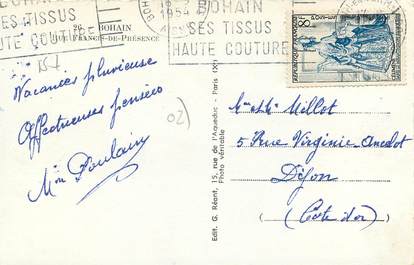 BOHAIN
SES TISSUS
HAUTE COUTURE
1954
BOHAIN
SES TISSUS
HAUTE COUTURE
26. BOHAIN
FRANCIS-DE-PRÉSENCÉ
Vacances pluvieuse
Affectueuses pensées
Mon Poulain
(02)
Edit. G. Réant, 15, rue de l'Aqueduc - Paris (X)
Photo véritable
Mme & Mr Millot
5 Rue Virginie-Ancelot
Dijon
(Côte d'or)